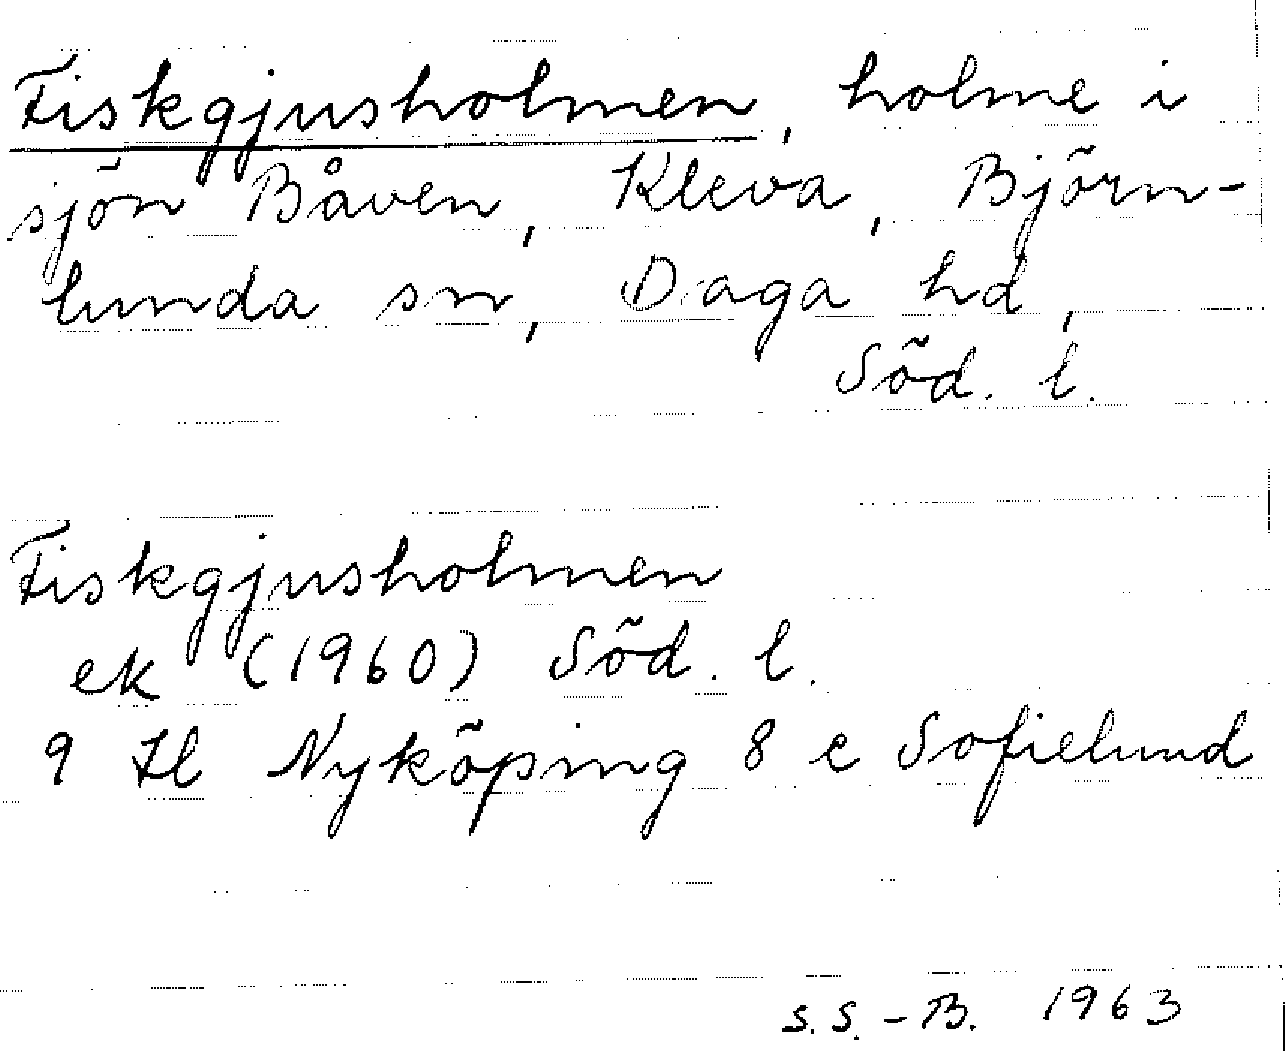 Fiskgjusholmen, holme i
sjön Båven, Kleva, Björn-
lunda sn, Daga hd,
Söd. l.
Fiskgjusholmen
ek (1960) Söd. l.
9 Hl Nyköping 8 c Sofielund
S.S.-B. 1963